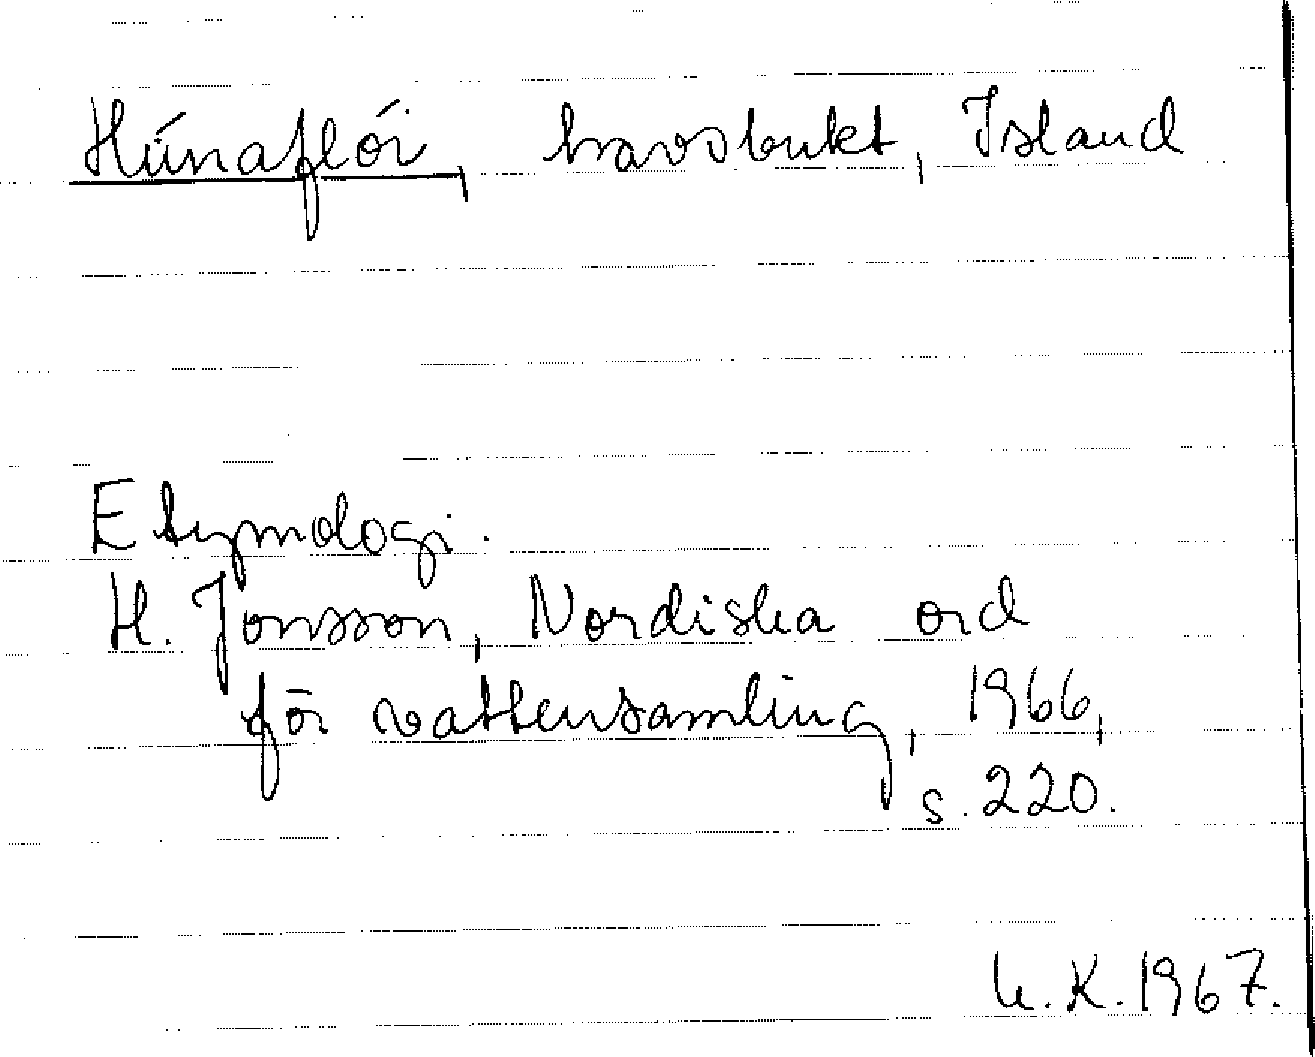 Húnaflói, havsbukt, Island
Etymologi.
H. Jonsson, Nordiska ord
för vattensamling, 1966,
s. 220.
U.K. 1967.